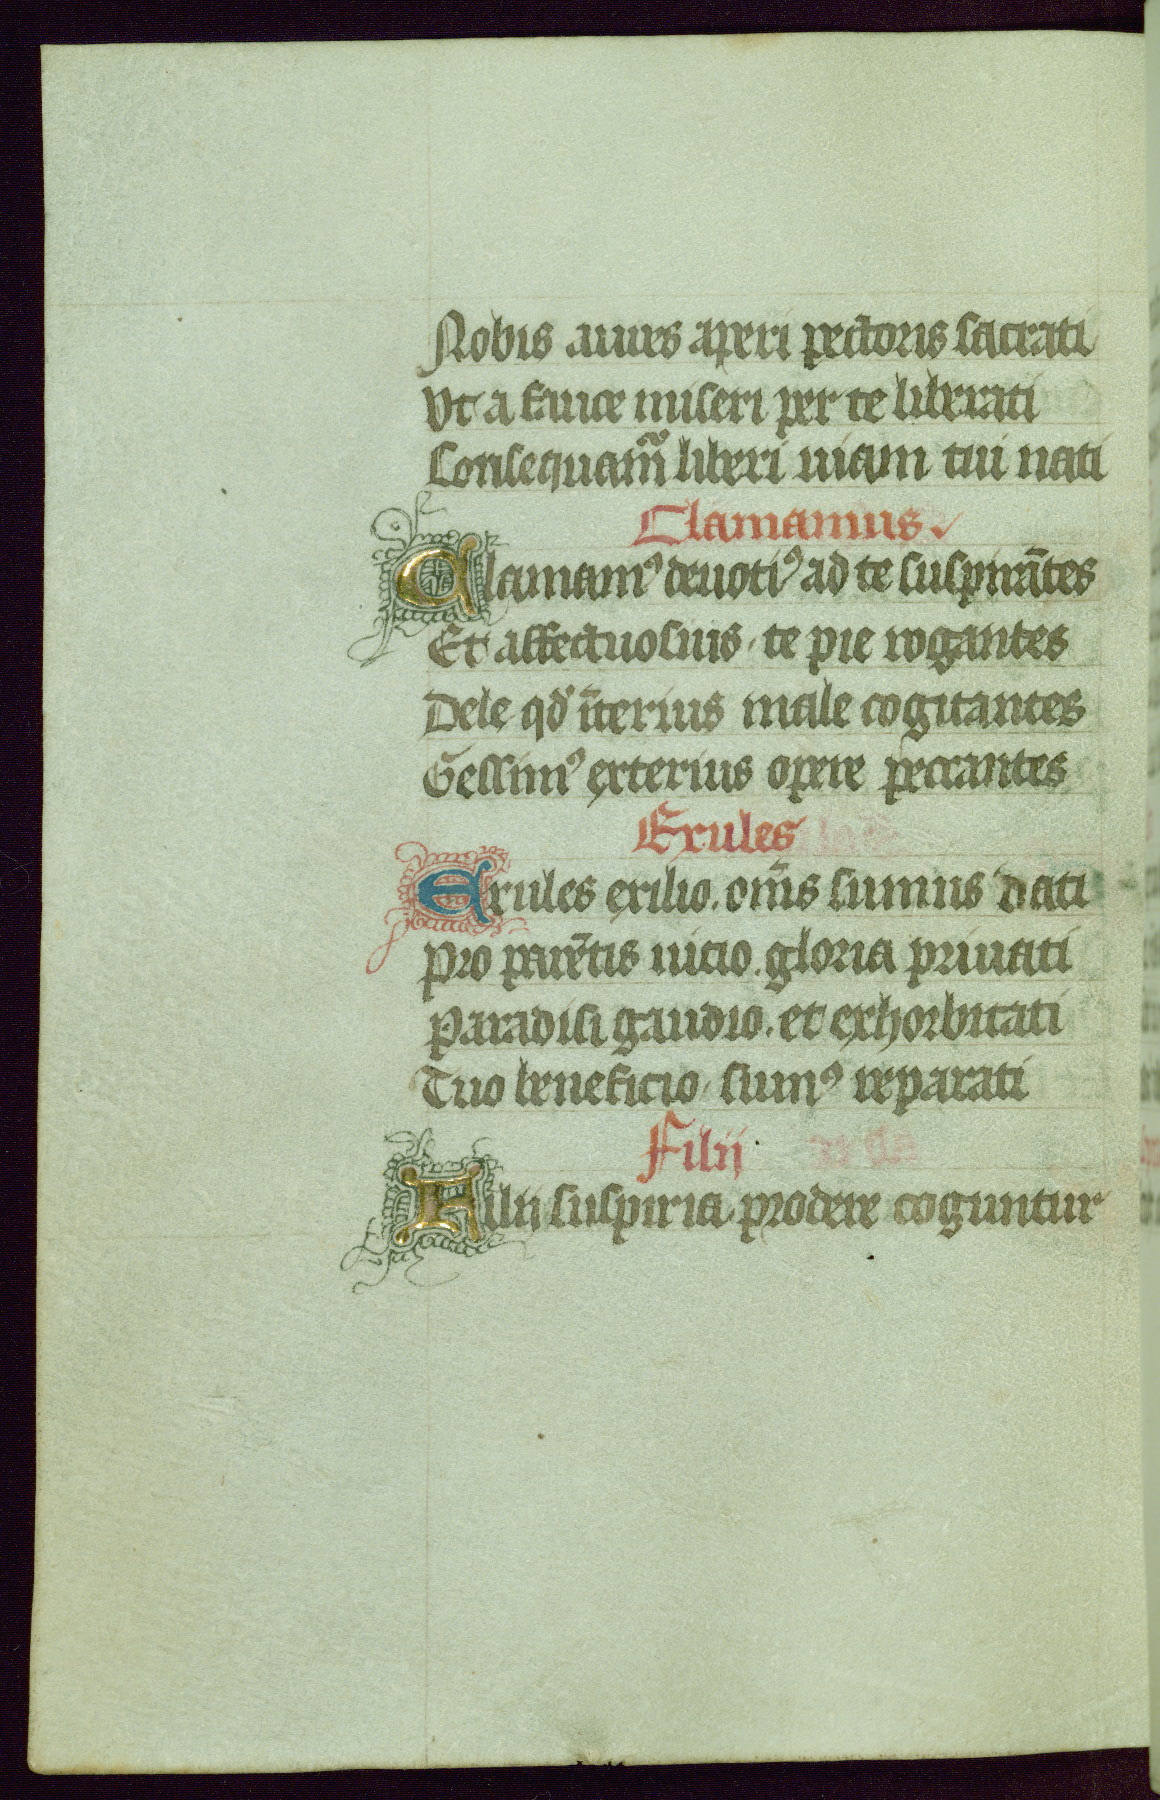 Nobis aures aperi pectoris sacrati
Vt a fauce miseri per te liberati
Consequamᷓ liberi uiam tui nati
Clamamus
Clamamꝰ deuotiꝰ ad te suspirãtes
Et affectuosius te pie rogantes
Dele qd̛ ĩterius male cogitantes
Gessimꝰ exterius opere peccantes
Exules
Exules exilio. om̄s sumus dati
Pro parẽtis uicio. gloria priuati
Paradisi gaudio. et exhorbitati
Tuo beneficio sumꝰ reparati
Filii
Filii suspiria prodere coguntur